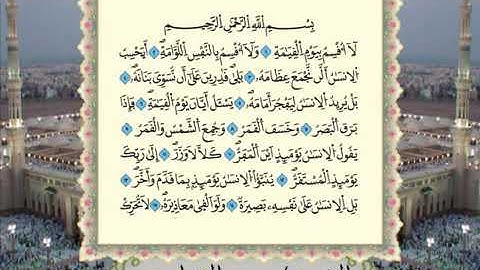 بِسْمِ اللَّهِ الرَّحْمَٰنِ الرَّحِيمِ
لَا أُقْسِمُ بِيَوْمِ الْقِيَامَةِ ۝١ وَلَا أُقْسِمُ بِالنَّفْسِ اللَّوَّامَةِ ۝٢ أَيَحْسَبُ
الْإِنسَانُ أَلَّن نَّجْمَعَ عِظَامَهُ ۝٣ بَلَىٰ قَادِرِينَ عَلَىٰ أَن نُّسَوِّيَ بَنَانَهُ ۝٤
بَلْ يُرِيدُ الْإِنسَانُ لِيَفْجُرَ أَمَامَهُ ۝٥ يَسْأَلُ أَيَّانَ يَوْمُ الْقِيَامَةِ ۝٦ فَإِذَا
بَرِقَ الْبَصَرُ ۝٧ وَخَسَفَ الْقَمَرُ ۝٨ وَجُمِعَ الشَّمْسُ وَالْقَمَرُ ۝٩
يَقُولُ الْإِنسَانُ يَوْمَئِذٍ أَيْنَ الْمَفَرُّ ۝١٠ كَلَّا لَا وَزَرَ ۝١١ إِلَىٰ رَبِّكَ
يَوْمَئِذٍ الْمُسْتَقَرُّ ۝١٢ يُنَبَّأُ الْإِنسَانُ يَوْمَئِذٍ بِمَا قَدَّمَ وَأَخَّرَ ۝١٣
بَلِ الْإِنسَانُ عَلَىٰ نَفْسِهِ بَصِيرَةٌ ۝١٤ وَلَوْ أَلْقَىٰ مَعَاذِيرَهُ ۝١٥ لَا تُحَرِّكْ